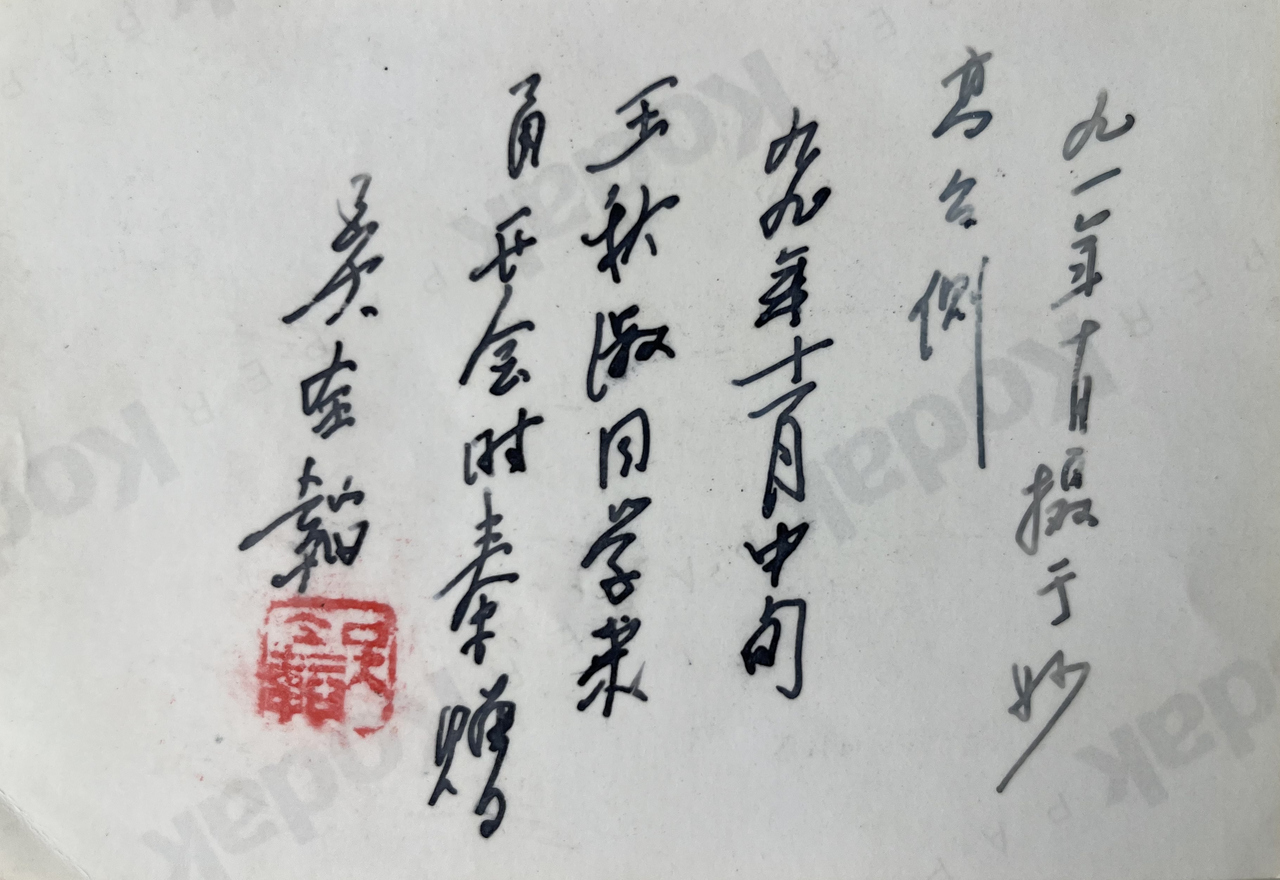 九一年十月摄于妙
高台侧
九九年十一月中旬
王秋淑同学来
甬开会时奉赠
吴金韬
Kodak